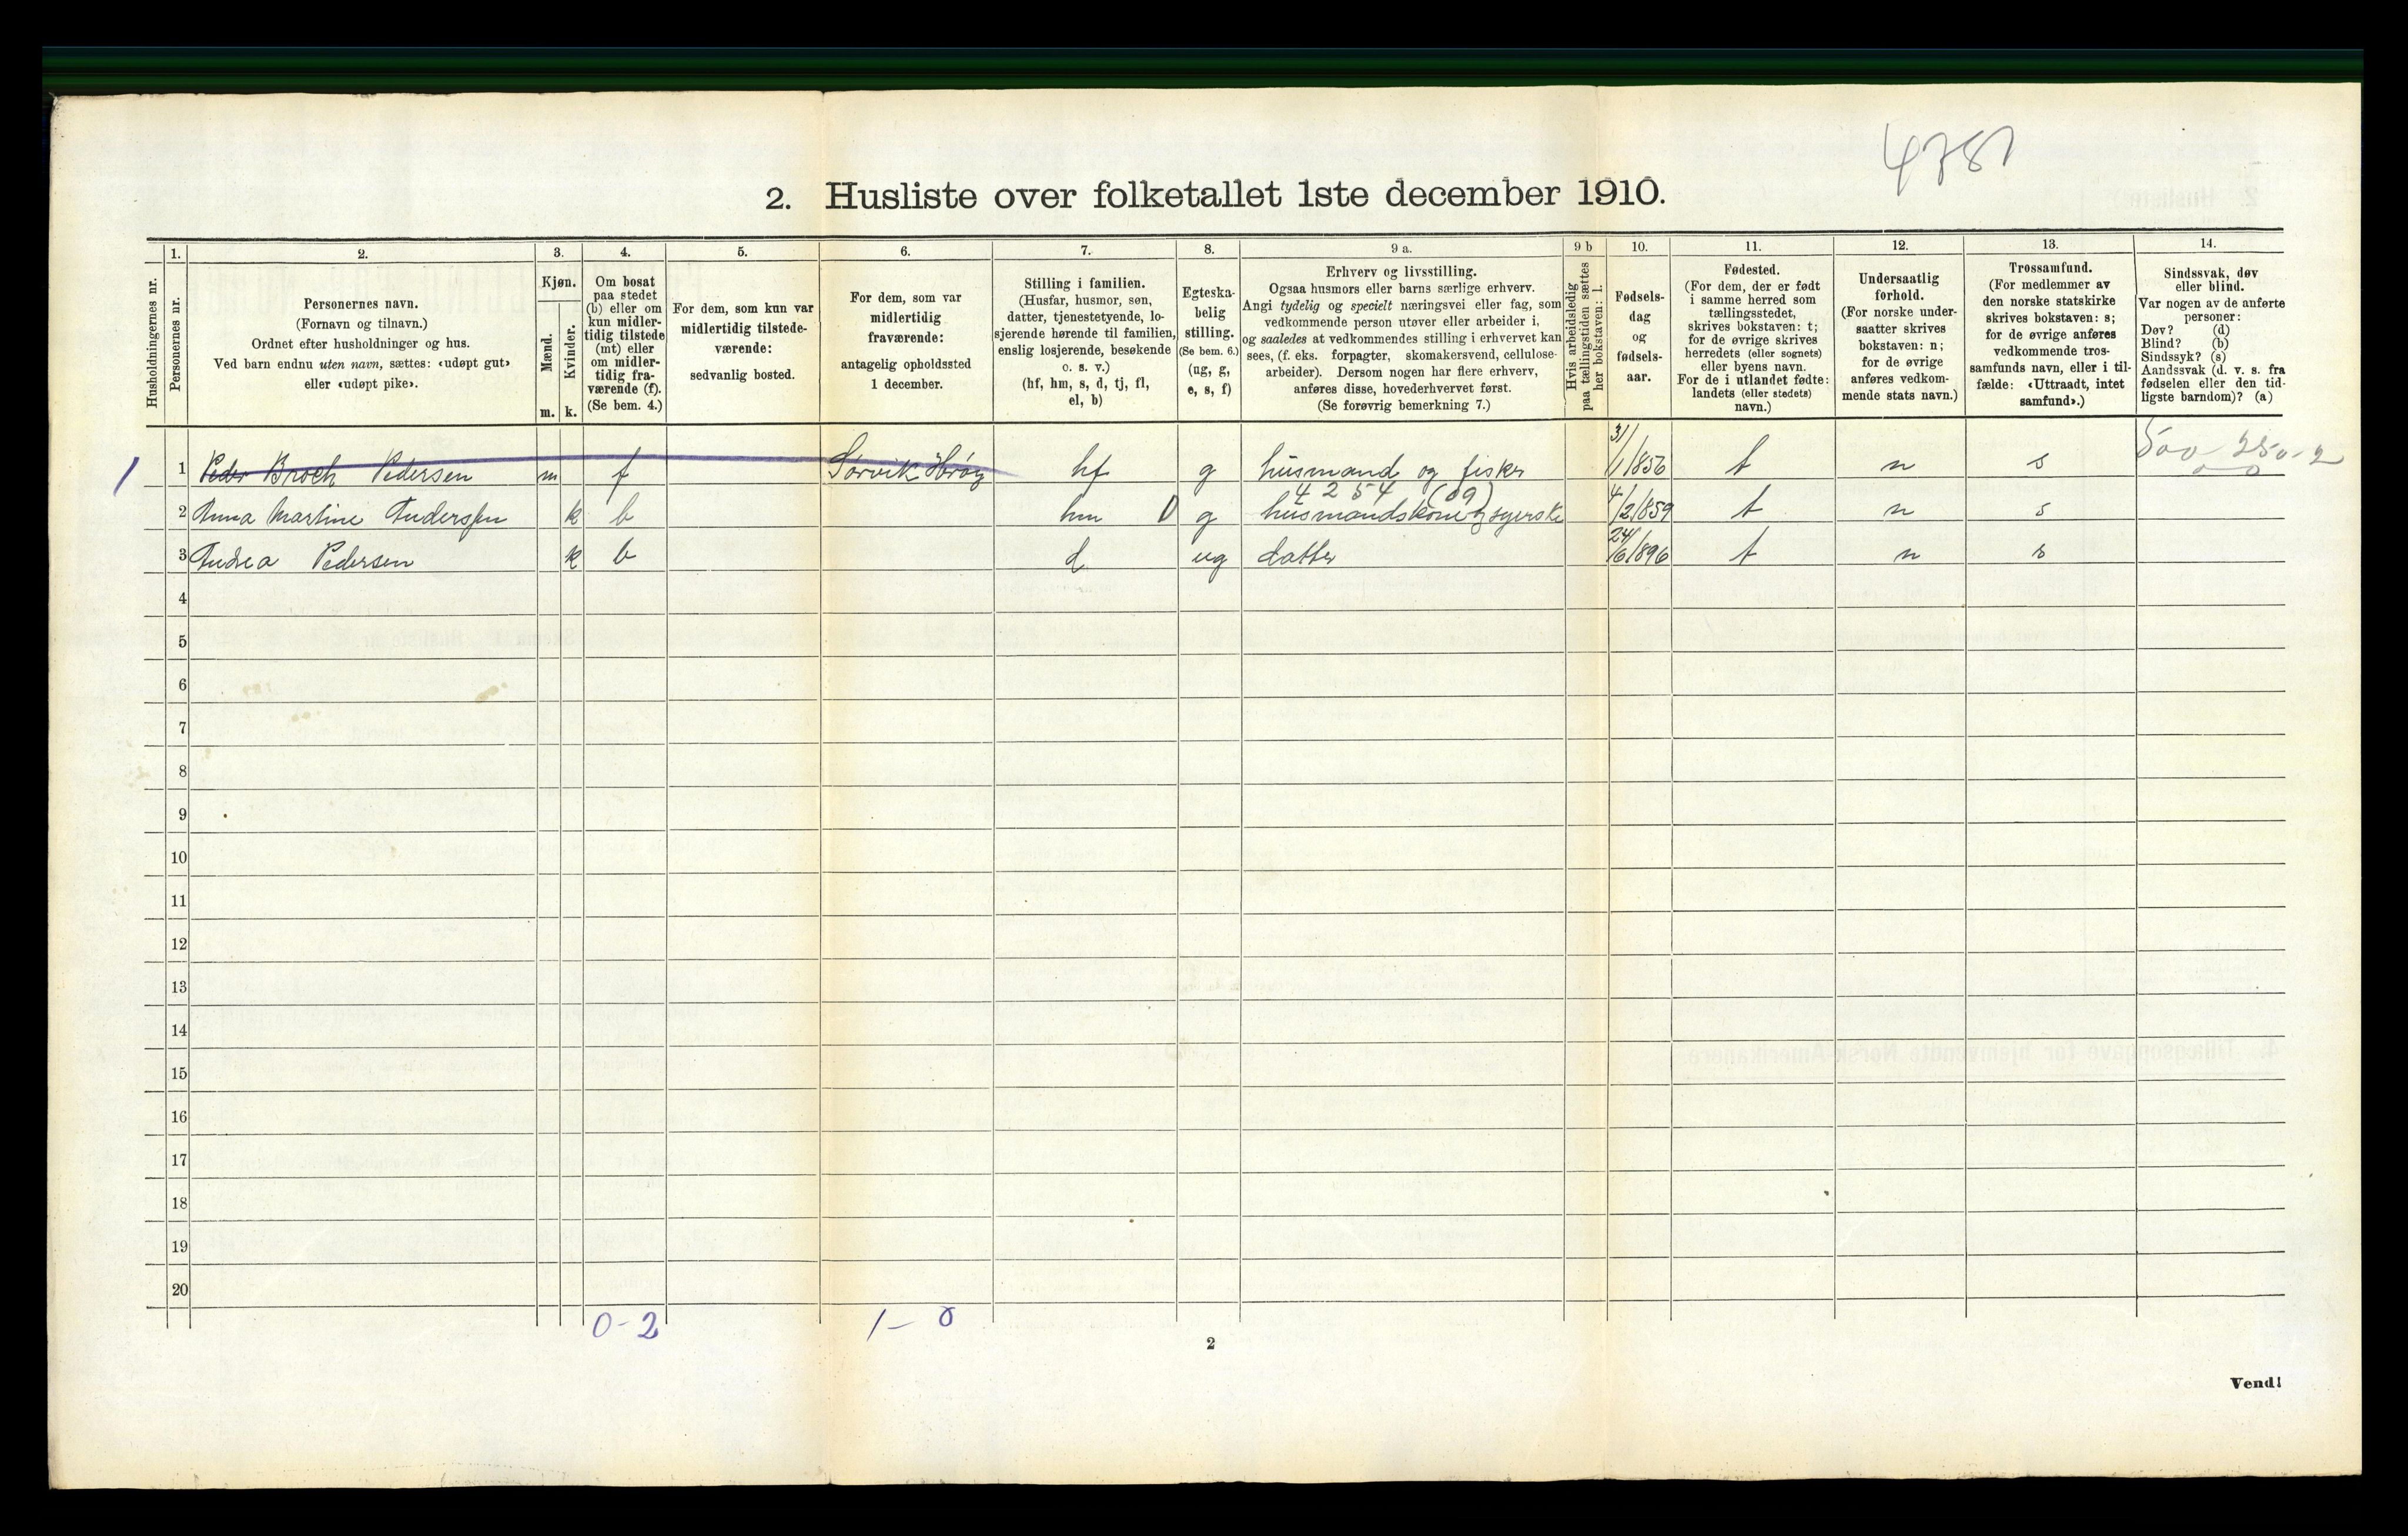 4781
2. Husliste over folketallet 1ste december 1910.
Husholdningernes nr.
1.
Personernes nr.
2.
Personernes navn.
(Fornavn og tilnavn.)
Ordnet efter husholdninger og hus.
Ved barn endnu uten navn, sættes: «udøpt gut»
eller «udøpt pike».
3.
Kjøn.
Mænd.
Kvinder.
m. k.
4.
Om bosat
paa stedet
(b) eller om
kun midler-
tidig tilstede
(mt) eller
om midler-
tidig fra-
værende (f).
(Se bem. 4.)
5.
For dem, som kun var
midlertidig tilstede-
værende:
sedvanlig bosted.
6.
For dem, som var
midlertidig
fraværende:
antagelig opholdssted
1 december.
7.
Stilling i familien.
(Husfar, husmor, søn,
datter, tjenestetyende, lo-
sjerende hørende til familien,
enslig losjerende, besøkende
o. s. v.)
(hf, hm, s, d, tj, fl,
el, b)
8.
Egteska-
belig
stilling.
(Se bem. 6.)
(ug, g,
e, s, f)
9 a.
Erhverv og livsstilling.
Ogsaa husmors eller barns særlige erhverv.
Angi tydelig og specielt næringsvei eller fag, som
vedkommende person utøver eller arbeider i,
og saaledes at vedkommendes stilling i erhvervet kan
sees, (f. eks. forpagter, skomakersvend, cellulose-
arbeider). Dersom nogen har flere erhverv,
anføres disse, hovederhvervet først.
(Se forøvrig bemerkning 7.)
9 b
Hvis arbeidsledig
paa tællingstiden sættes
her bokstaven: l.
10.
Fødsels-
dag
og
fødsels-
aar.
11.
Fødested.
(For dem, der er født
i samme herred som
tællingsstedet,
skrives bokstaven: t;
for de øvrige skrives
herredets (eller sognets)
eller byens navn.
For de i utlandet fødte:
landets (eller stedets)
navn.)
12.
Undersaatlig
forhold.
(For norske under-
saatter skrives
bokstaven: n;
for de øvrige
anføres vedkom-
mende stats navn.)
13.
Trossamfund.
(For medlemmer av
den norske statskirke
skrives bokstaven: s;
for de øvrige anføres
vedkommende tros-
samfunds navn, eller i til-
fælde: «Uttraadt, intet
samfund».)
14.
Sindssvak, døv
eller blind.
Var nogen av de anførte
personer:
Døv? (d)
Blind? (b)
Sindssyk? (s)
Aandssvak (d. v. s. fra
fødselen eller den tid-
ligste barndom)? (a)
500 250-2
0 0
1 1 Peder Broch Pedersen m f Sørvik Hrøy hf g husmand og fisker 31/1 1856 t n s
4254 (09)
2 Anna Martine Anderssen k b hm D g husmandskone og syerske 4/2 1859 t n s
3 Andrea Pedersen k b d ug datter 24/6 1896 t n s
4
5
6
7
8
9
10
11
12
13
14
15
16
17
18
19
20
0-2 1-0
2
Vend!